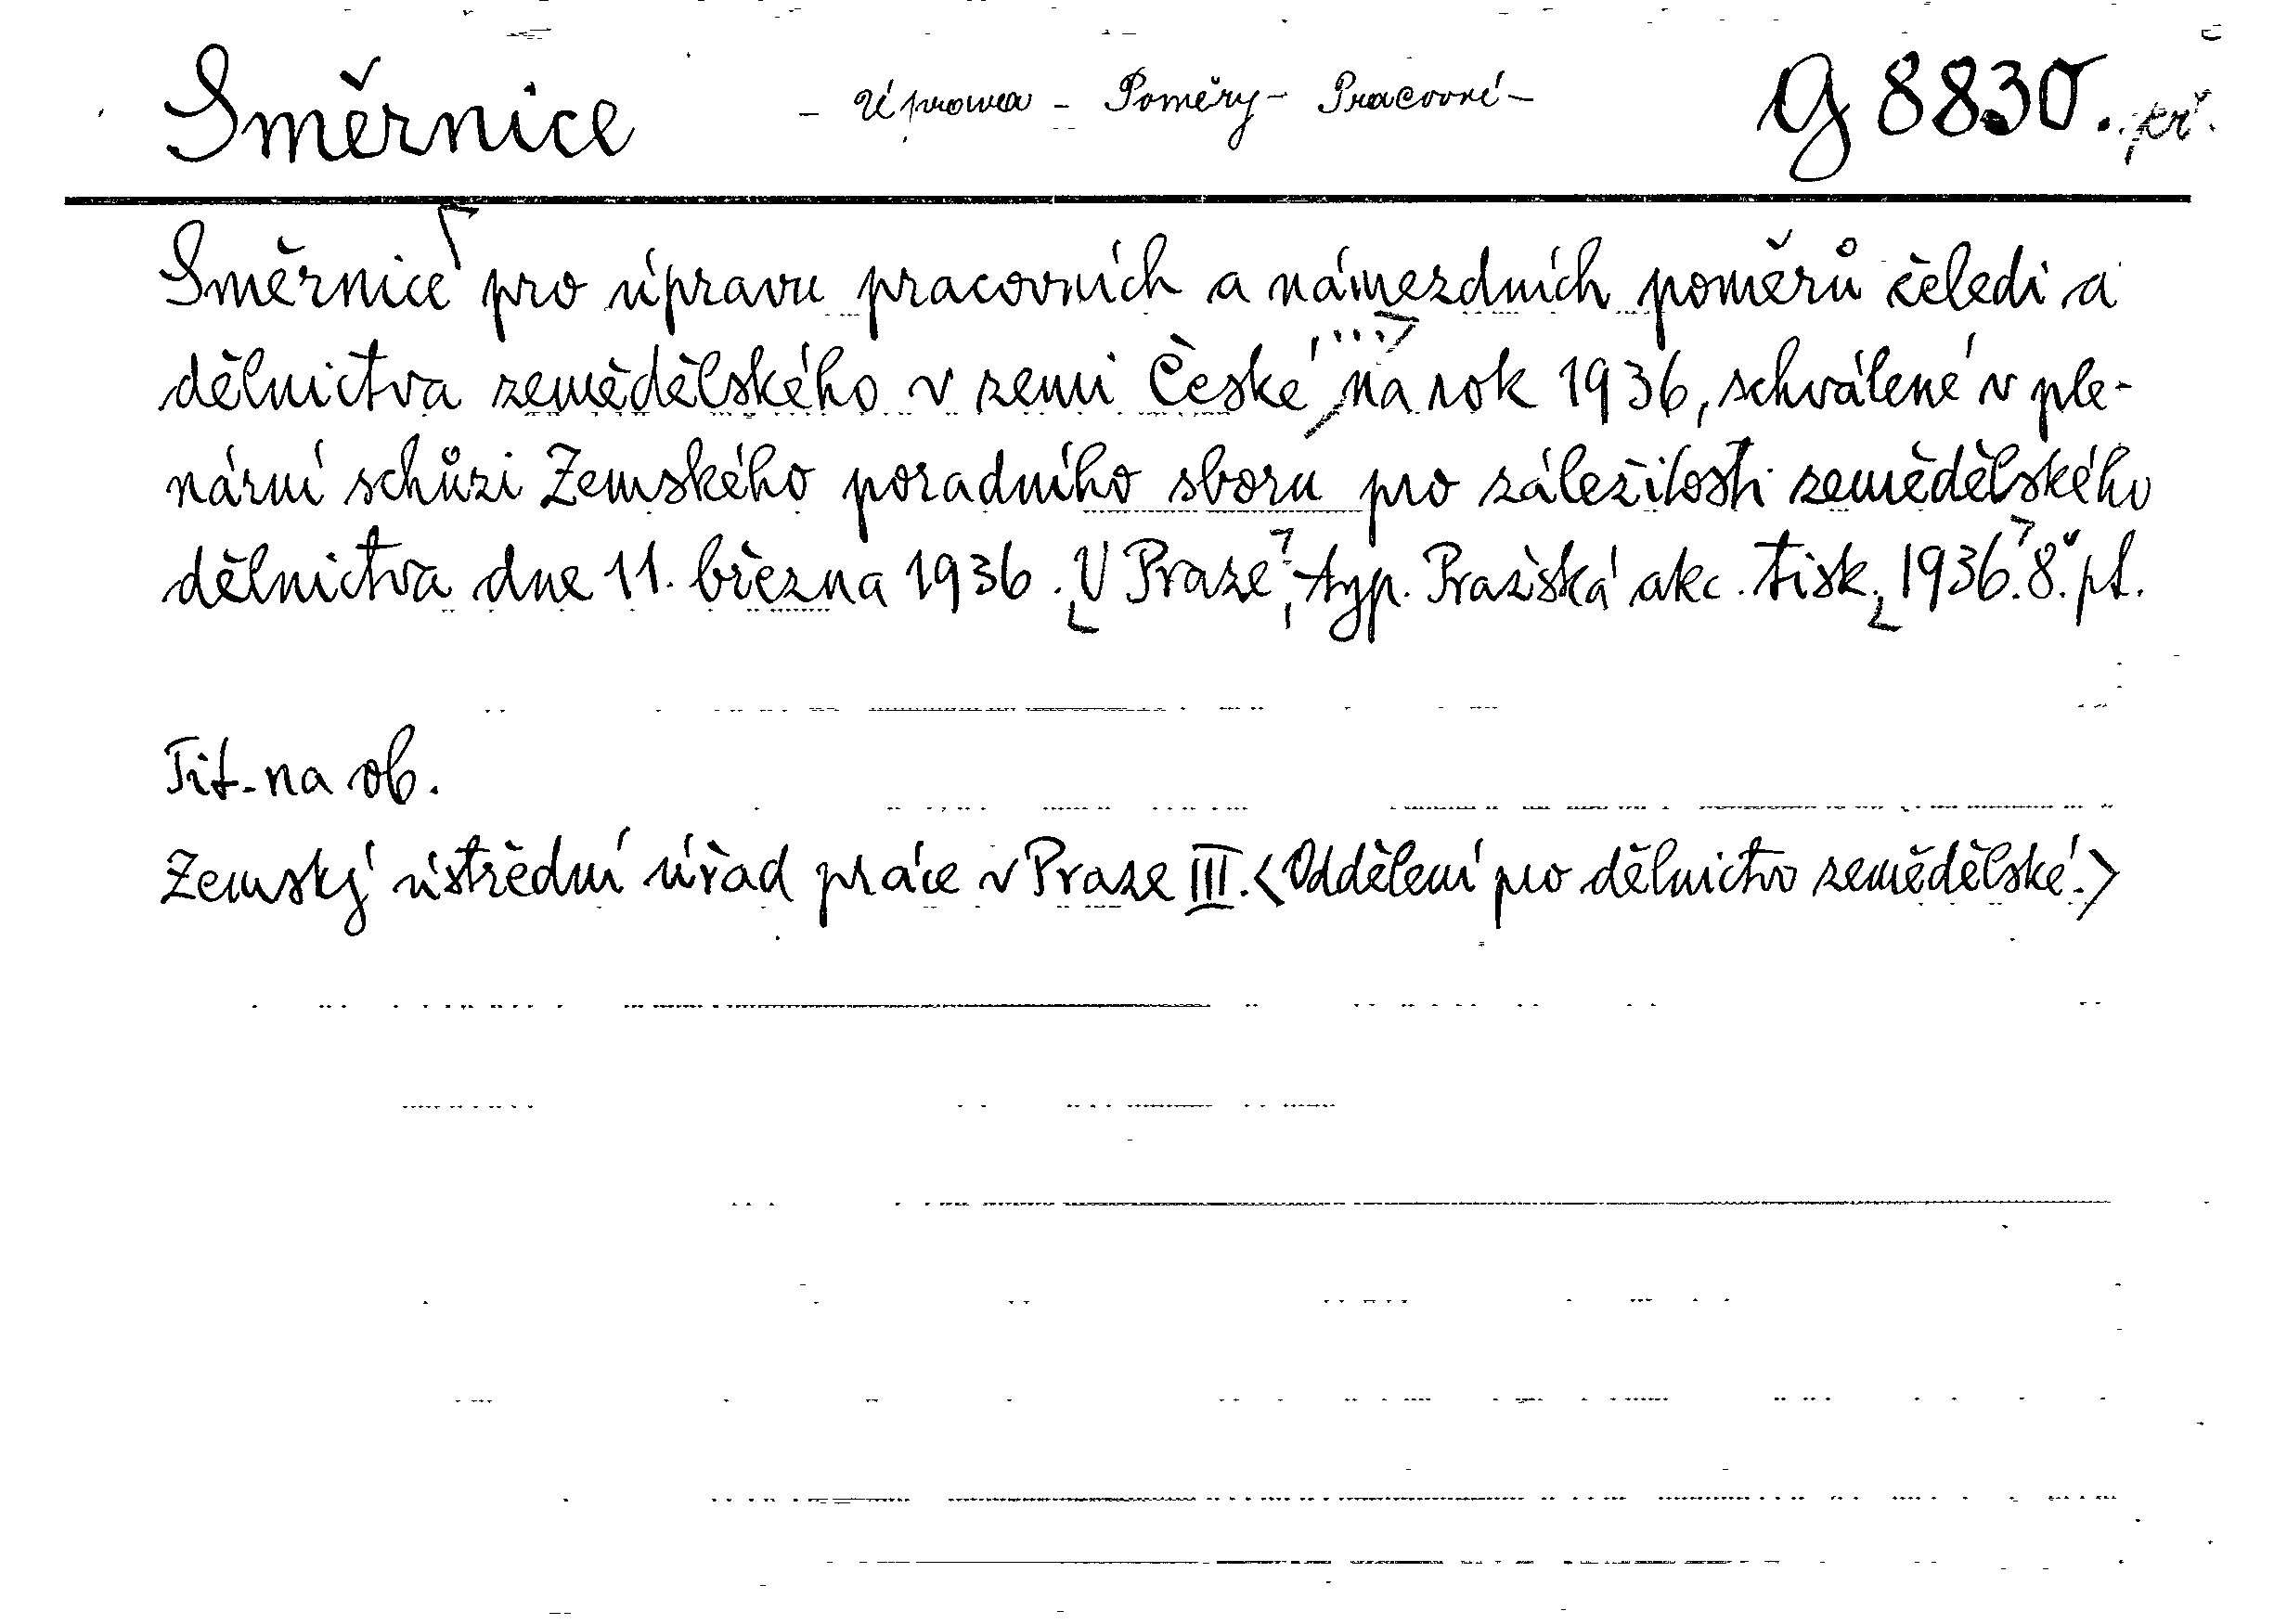 Směrnice – Úprava – Poměry – Pracovní – G 8830. př.
Směrnice pro úpravu pracovních a námezdních poměrů čeledi a
dělnictva zemědělského v zemi České ... na rok 1936, schválené v ple-
nární schůzi Zemského poradního sboru pro záležitosti zemědělského
dělnictva dne 11. března 1936. V Praze, typ. Pražská akc. tisk., 1936. 8°. pt.
Tit. na ob.
Zemský ústřední úřad práce v Praze III. <Oddělení pro dělnictvo zemědělské.>